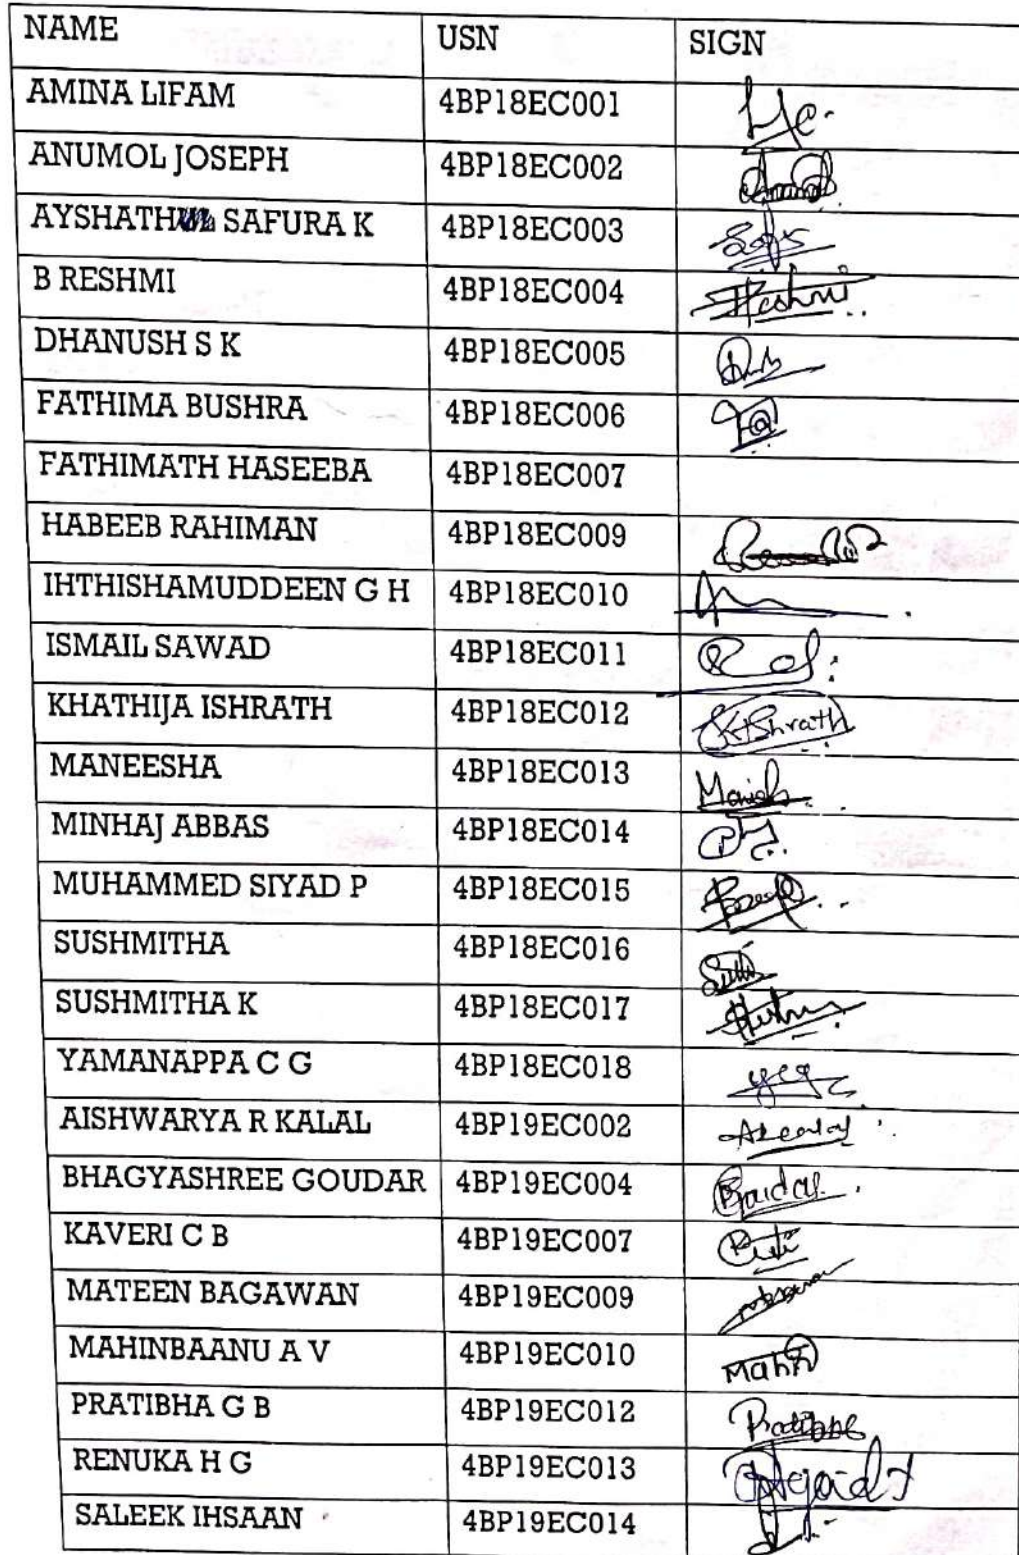 NAME USN SIGN
AMINA LIFAM 4BP18EC001
ANUMOL JOSEPH 4BP18EC002
AYSHATH SAFURA K 4BP18EC003
B RESHMI 4BP18EC004 Reshmi
DHANUSH S K 4BP18EC005
FATHIMA BUSHRA 4BP18EC006
FATHIMATH HASEEBA 4BP18EC007
HABEEB RAHIMAN 4BP18EC009
IHTHISHAMUDDEEN G H 4BP18EC010
ISMAIL SAWAD 4BP18EC011
KHATHIJA ISHRATH 4BP18EC012
MANEESHA 4BP18EC013
MINHAJ ABBAS 4BP18EC014
MUHAMMED SIYAD P 4BP18EC015
SUSHMITHA 4BP18EC016
SUSHMITHA K 4BP18EC017
YAMANAPPA C G 4BP18EC018
AISHWARYA R KALAL 4BP19EC002
BHAGYASHREE GOUDAR 4BP19EC004
KAVERI C B 4BP19EC007
MATEEN BAGAWAN 4BP19EC009
MAHINBAANU A V 4BP19EC010
PRATIBHA G B 4BP19EC012
RENUKA H G 4BP19EC013
SALEEK IHSAAN 4BP19EC014